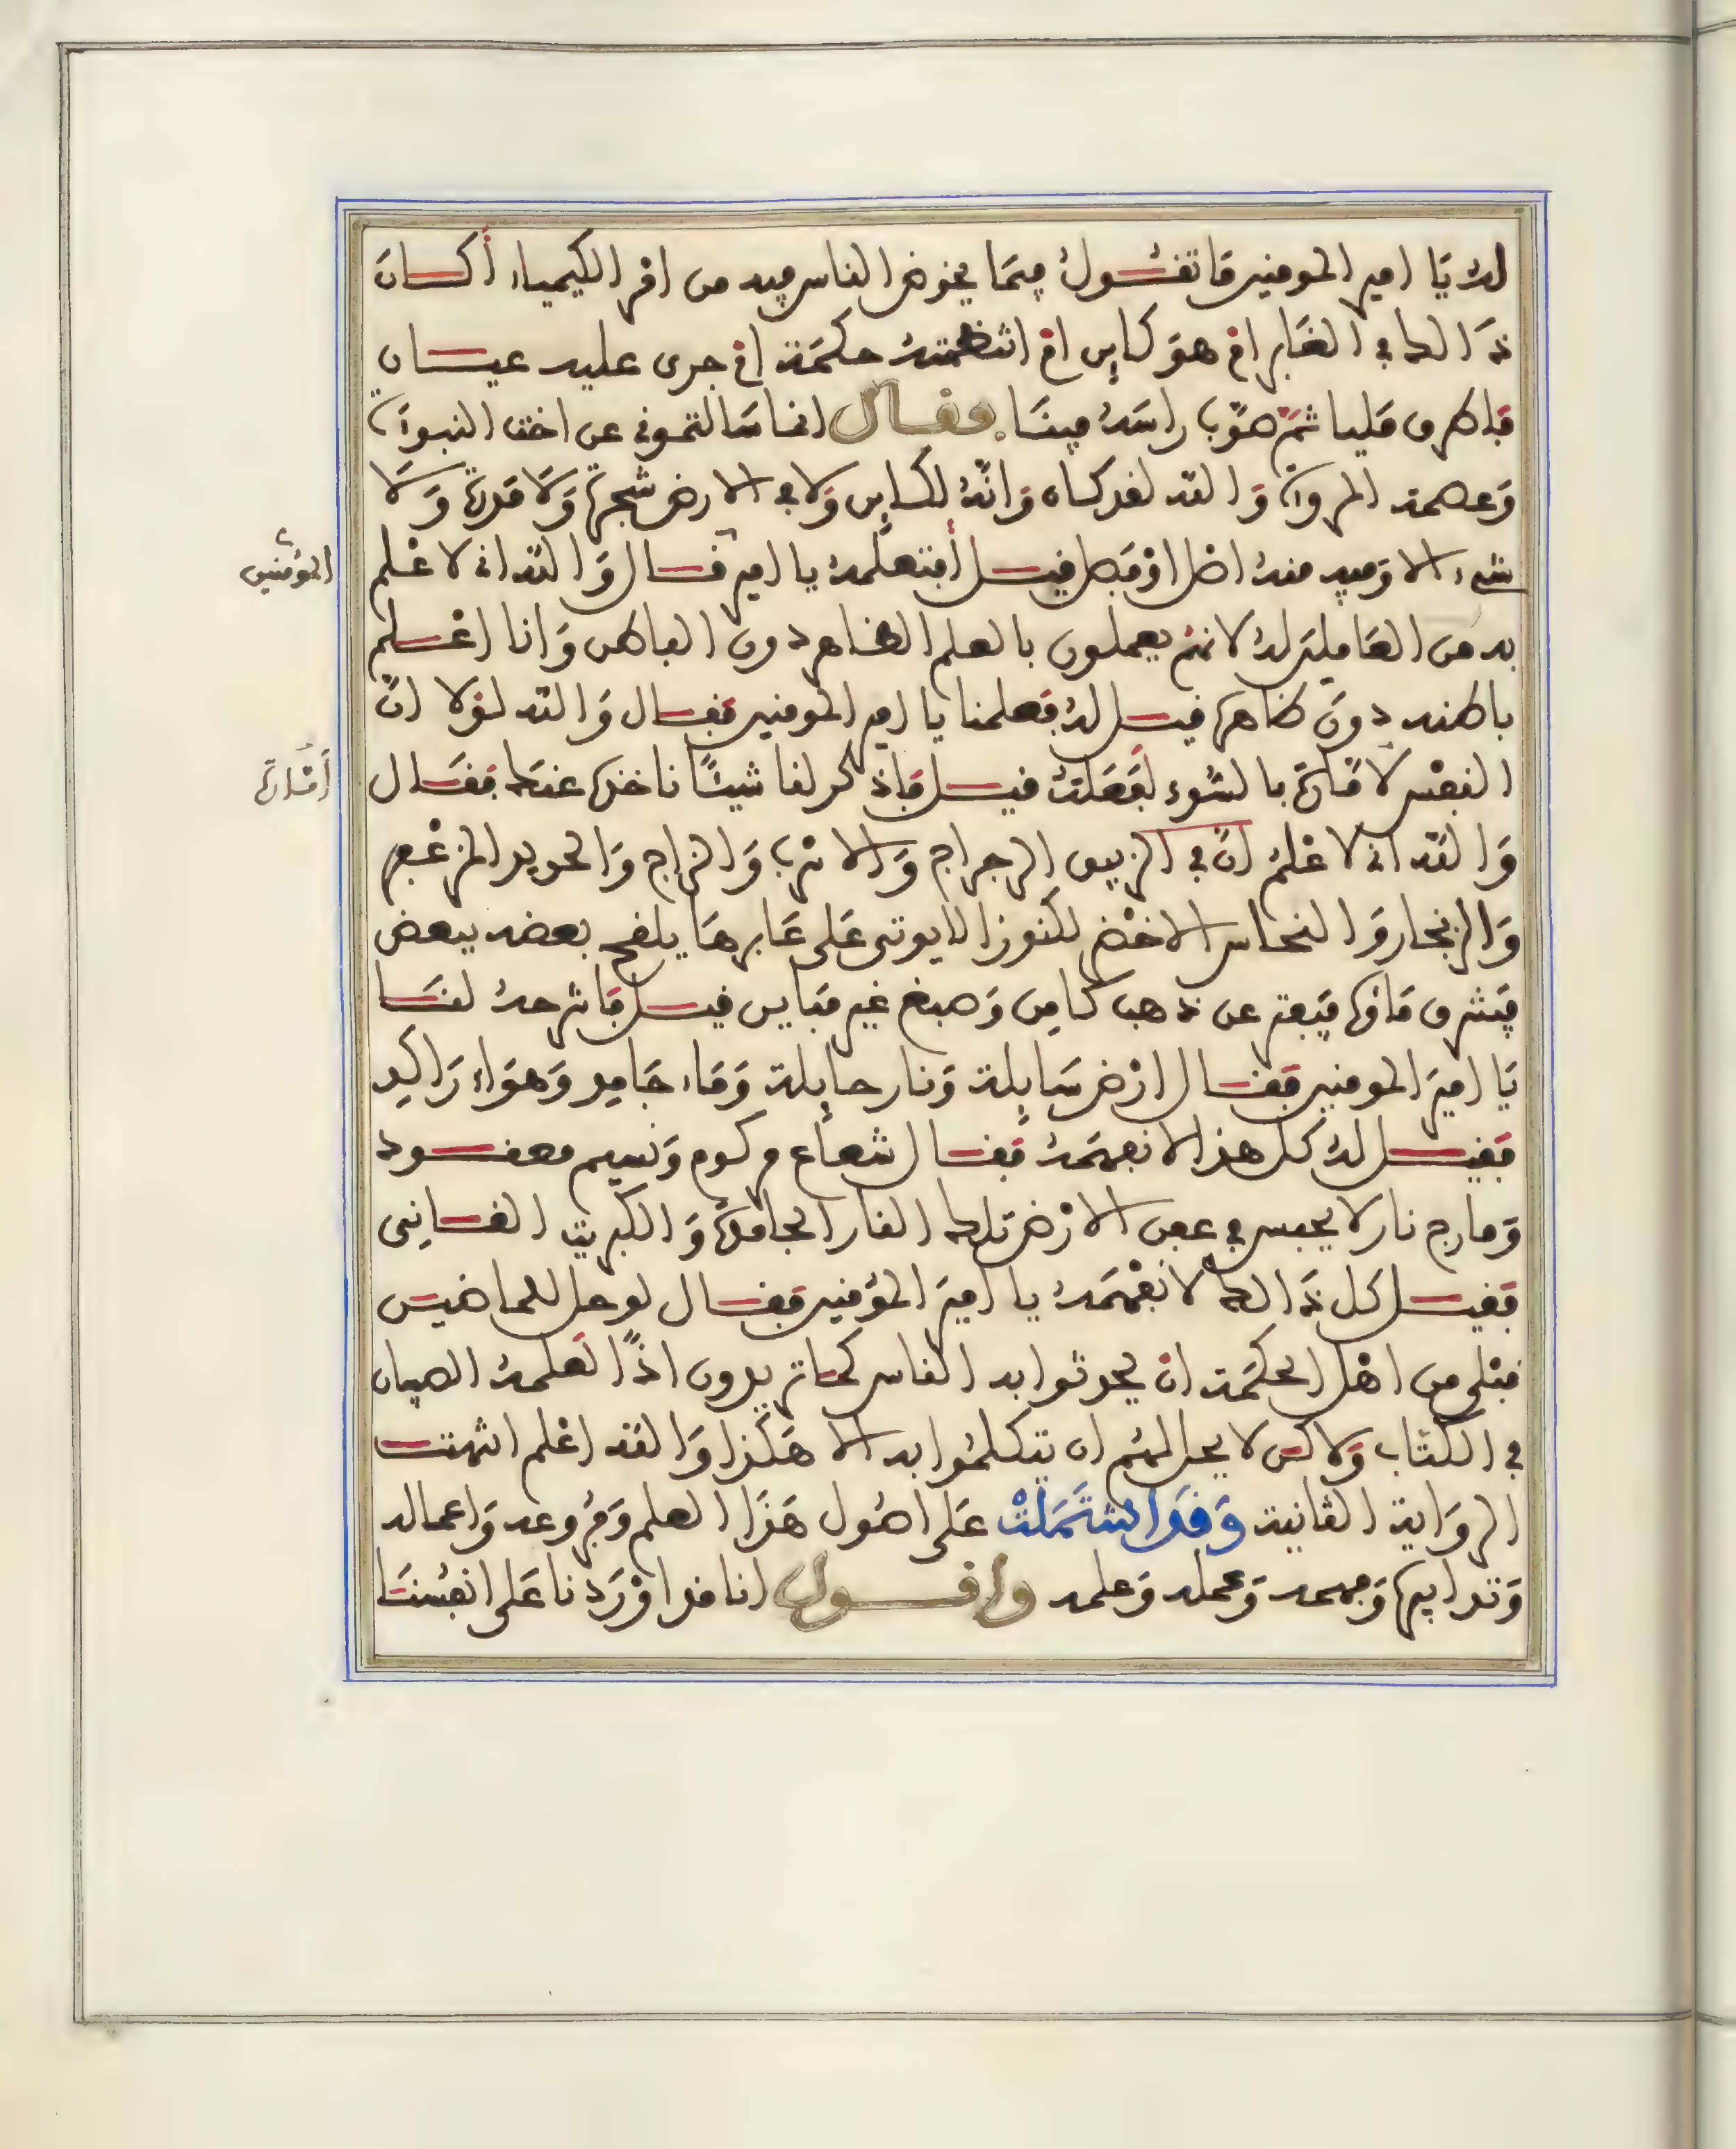 له يَا امير المومنين مَا تقُـول فيمَا يخوض الناس فيه من امر الكيمياء أكـان
ذَالك في الغَابر امْ هوَ كاين امْ انتظمته حكمَة امْ جرى عليه عيـان
فَاطرق مليا ثمَّ صوَّب راسَه فينَا. فقـال انما سَالتموني عن اخت النبوَّة
وَعصمة المروَّة وَالله لقد كان وَانَّه لكـاين وَلا في الارض شجرَة وَلا مدرَة وَلَا
شيء الا وَفيه منه اصل اوْ فصل قيـل أفتعلمه يا امير قـال وَاللَّه اني لاعْـلم
المؤمنين
به من العَاملين له لانهمْ يعملون بالعلم الظاهر دون الباطن وَانا اعْـلم
باطنه دونَ ظاهره قيـل له فعلمنا يا امير المومنين فقـال وَاللّه لوْلا انَّ
النفْس لامَّارَة بالسُّوء لفَعَلتُ قيـل فَاذكر لنا شيئًا ناخذه عنك فقَـال
أمَّارة
وَاللَّه اني لاعْلمُ انّ في الزيبق الرجراج وَالاسرب وَالزاج وَالحديد المزعْفر
وَالزنجار وَالنحاس الاخْضر لكنوزا لا يوتى عَلى غَابرهَا يلقح بعضه ببعض
فيَنشق مَاؤه فيَفتر عن ذهب كَامن وَصبغ غير مبَاين قيـل فَاشرحهُ لنـا
يَا اميرَ المومنين فقـال ارْض سَايلة وَنار حايلة وَمَاء جَامد وَهوَاء رَاكد
فَقيـل لهُ كل هذا لا نفهمَهُ فقـال شعاع مركوم وَنسيم معقـود
وَمارج نار لا يحبس في عمق الارْض تلك النار الجامدَة وَالكبريت القـانِي
فَقيـل كل ذَالك لا نفْهَمَهُ يا اميرَ المؤمنين فقـال لو حل للماضيـن
قبْلي من اهْل الحكمَة انْ يحدثوا به الناس كمَا تريدون اذًا لعَلمهُ الصبيان
في الكتاب وَلاكن لا يحل لهُم ان يتكلمُوا به الا هَكذا وَالله اعْلم انتهت
الروَاية الثانية وَقَد اشْتَمَلتْ عَلى اصُول هَذَا العلم وَفرُوعه وَاعماله
وَتدابيره وَفهمه وَعمله وَعلمه وَاقـول انا قد اوْرَدنا عَلى انفسنَا